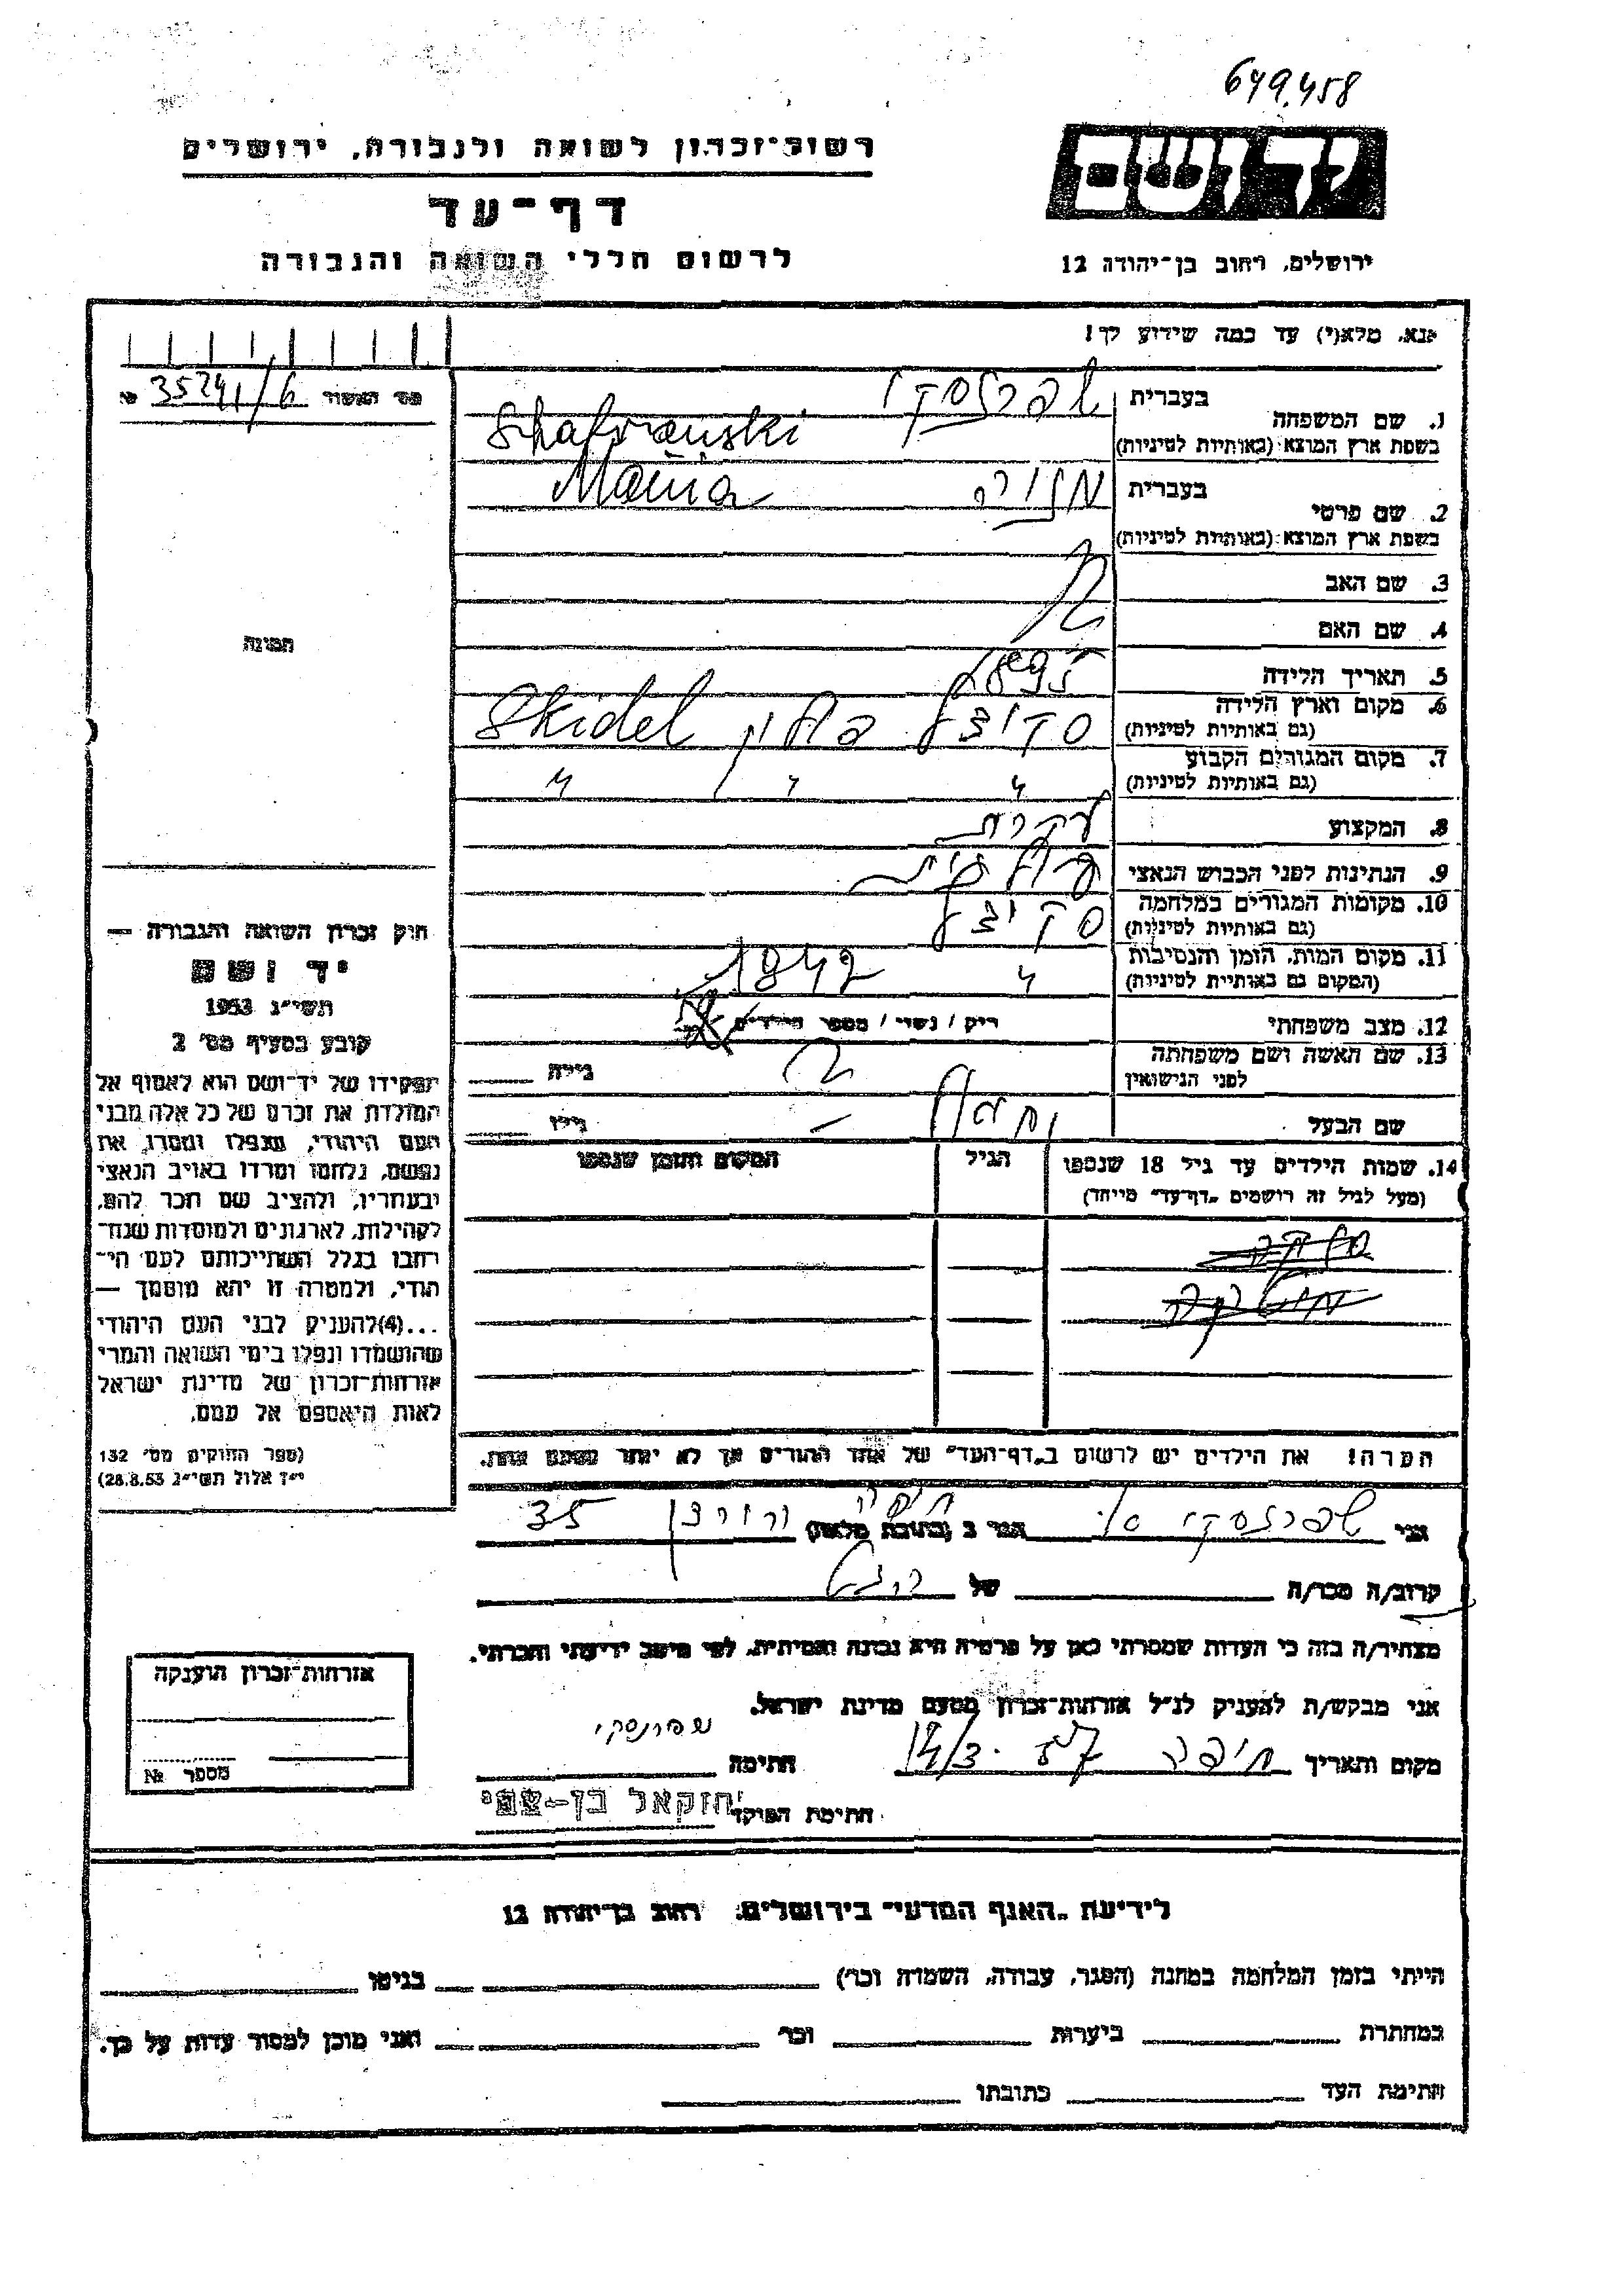 649.458
רשות־זכרון לשואה ולגבורה, ירושלים
יד ושם
דף־עד
לרשום חללי השואה והגבורה
ירושלים, רחוב בן־יהודה 12
נא, מלא(י) עד כמה שידוע לך!
מס׳ האשור 35241/6
1. שם המשפחה
בעברית
בשפת ארץ המוצא (באותיות לטיניות)
Schafranski
2. שם פרטי
בעברית
בשפת ארץ המוצא (באותיות לטיניות)
Mania מניה
3. שם האב
4. שם האם
5. תאריך הלידה 1895
6. מקום וארץ הלידה
(גם באותיות לטיניות)
סקידל פולין Skidel
7. מקום המגורים הקבוע
(גם באותיות לטיניות)
" " "
8. המקצוע עקרת
9. הנתינות לפני הכבוש הנאצי פולנית
10. מקומות המגורים במלחמה
(גם באותיות לטיניות)
סקידל
11. מקום המות, הזמן והנסיבות
(המקום גם באותיות לטיניות)
" 1942
12. מצב משפחתי
רוק / נשוי / מספר הילדים
13. שם האשה ושם משפחתה
לפני הנישואין
גילה
שם הבעל
גילו
14. שמות הילדים עד גיל 18 שנספו
(מעל לגיל זה רושמים "דף־עד" מיוחד)
הגיל
המקום והזמן שנספו
הערה! את הילדים יש לרשום ב"דף־העד" של אחד ההורים אך לא יותר מפעם אחת.
תמונה
חוק זכרון השואה והגבורה —
יד ושם
תשי״ג 1953
קובע בסעיף מס׳ 2
תפקידו של יד־ושם הוא לאסוף אל
המולדת את זכרם של כל אלה מבני
העם היהודי, שנפלו ומסרו את
נפשם, נלחמו ומרדו באויב הנאצי
ובעוזריו, ולהציב שם וזכר להם,
לקהילות, לארגונים ולמוסדות שנח־
רבו בגלל השתייכותם לעם הי־
הודי, ולמטרה זו יהא מוסמך —
...(4)להעניק לבני העם היהודי
שהושמדו ונפלו בימי השואה והמרי
אזרחות־זכרון של מדינת ישראל
לאות היאספם אל עמם.
(ספר החוקים מס׳ 132
י״ז אלול תשי״ג 28.8.53)
אני הגר ב (כתובת מלאה) חיפה 35
קרוב/ה מכר/ה של
מצהיר/ה בזה כי העדות שמסרתי כאן על פרטיה היא נכונה ואמיתית, לפי מיטב ידיעתי והכרתי.
אני מבקש/ת להעניק לנ״ל אזרחות־זכרון מטעם מדינת ישראל.
מקום ותאריך חיפה 14/3 חתימה
חתימת הפוקד יחזקאל בן־צבי
אזרחות־זכרון הוענקה
מספר №
לידיעת "האגף המדעי" בירושלים, רחוב בן־יהודה 12
הייתי בזמן המלחמה במחנה (הסגר, עבודה, השמדה וכו׳) בגיטו
במחתרת ביערות וכו׳ ואני מוכן למסור עדות על כך.
חתימת העד כתובתו